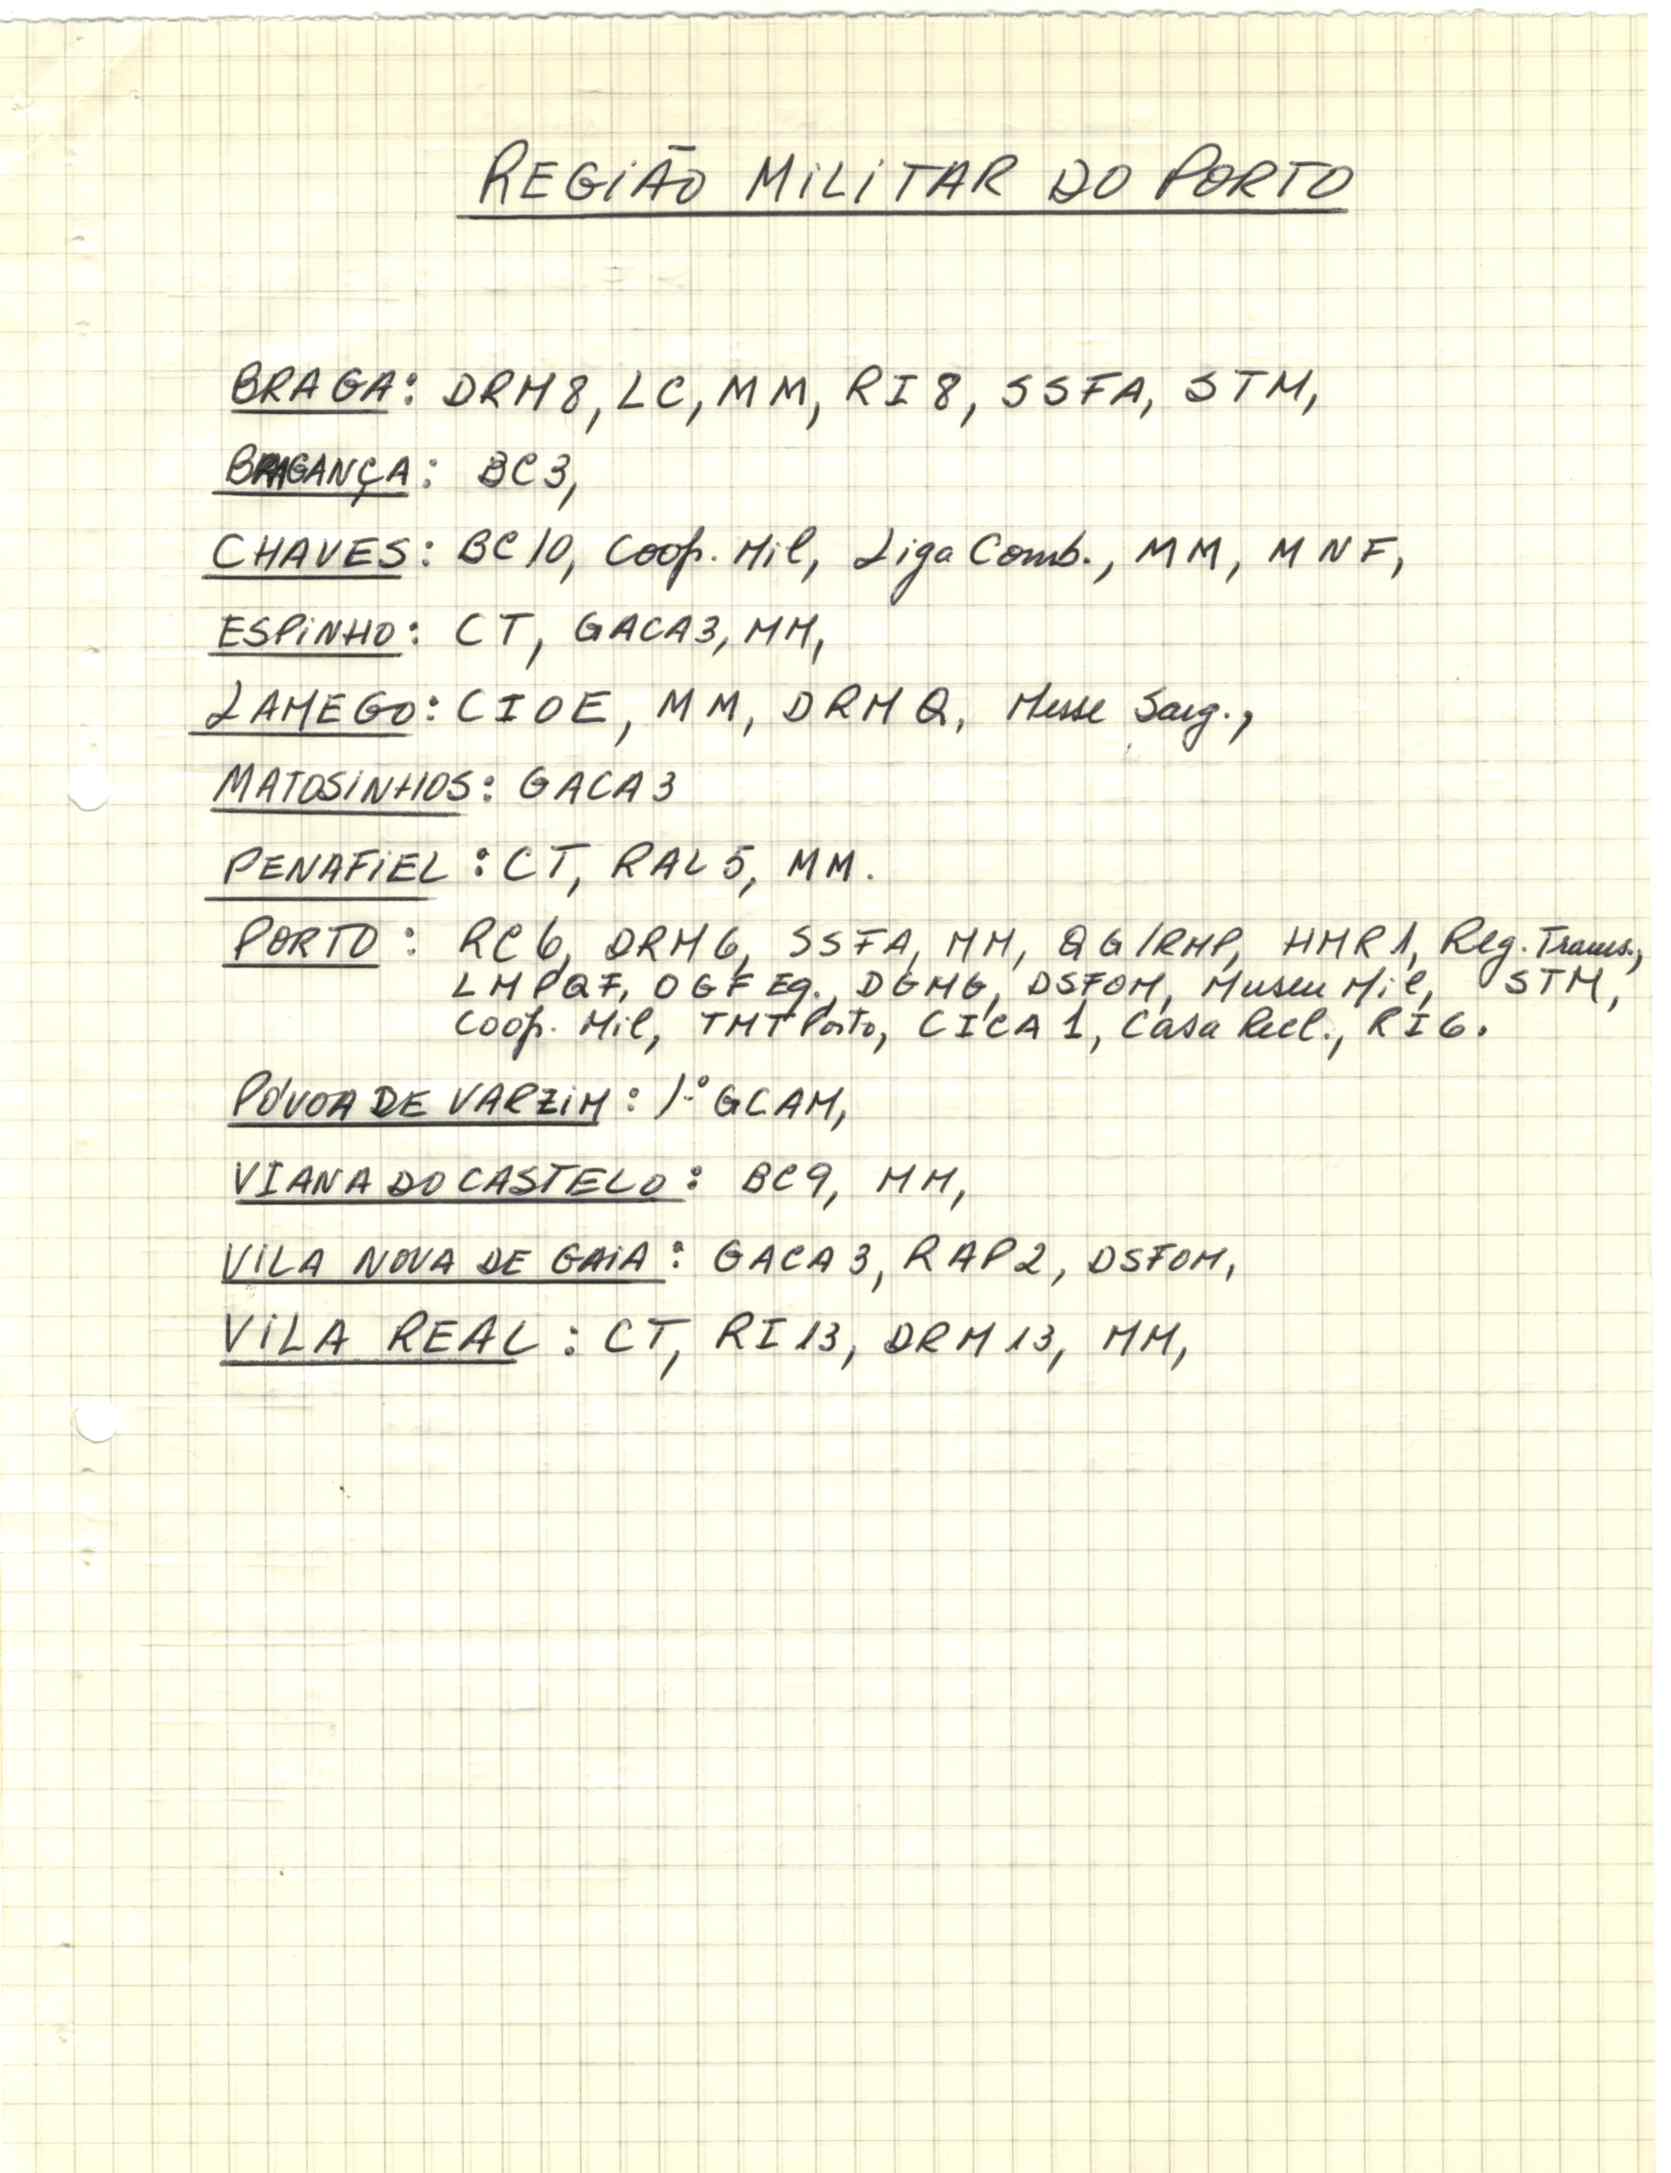 REGIÃO MILITAR DO PORTO
BRAGA: DRM8, LC, MM, RI8, SSFA, STM,
BRAGANÇA: BC3,
CHAVES: BC10, Coop. Mil, Liga Comb., MM, MNF,
ESPINHO: CT, GACA3, MM,
LAMEGO: CIOE, MM, DRM Q, Messe Sarg.,
MATOSINHOS: GACA3
PENAFIEL: CT, RAL5, MM.
PORTO: RC6, DRM6, SSFA, MM, QG/RMP, HMR1, Reg. Transs.,
LMPQF, OGFEq., DGMG, DSFOM, Museu Mil, STM,
Coop. Mil, TMTPorto, CICA1, Casa Recl., RI6.
PÓVOA DE VARZIM: 1.º GCAM,
VIANA DO CASTELO: BC9, MM,
VILA NOVA DE GAIA: GACA3, RAP2, DSFOM,
VILA REAL: CT, RI13, DRM13, MM,